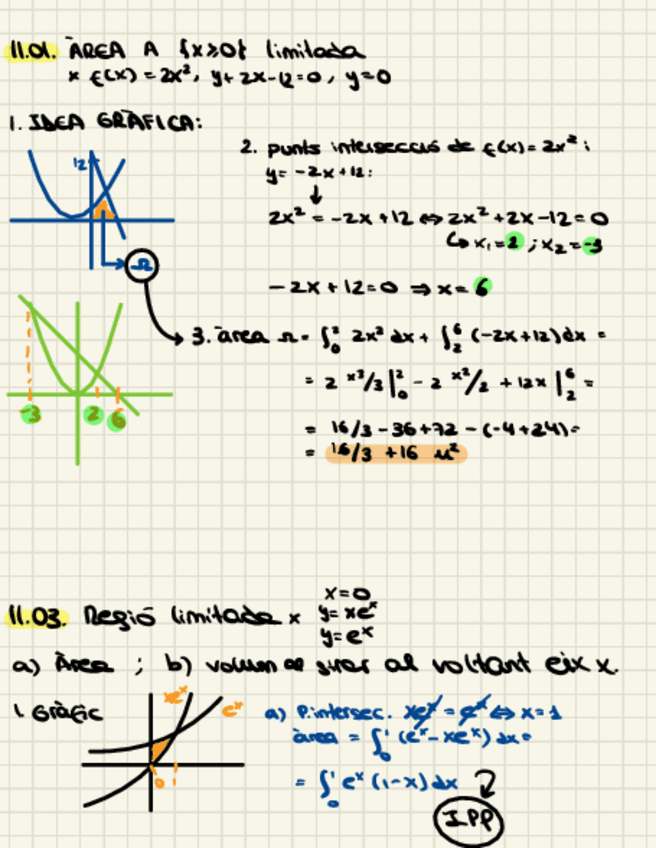 11.01. ÀREA A {x≥0} limitada
x f(x) = 2x², y+2x-12=0, y=0
1. IDEA GRÀFICA:
12
Ω
-3 2 6
2. punts intersecció de f(x) = 2x² i
y= -2x+12:
↓
2x² = -2x+12 ⇔ 2x²+2x-12=0
↳ x₁=2 ; x₂=-3
-2x+12=0 ⇒ x= 6
3. àrea Ω = ∫₀² 2x² dx + ∫₂⁶ (-2x+12)dx =
= 2 x³/3 |₀² - 2 x²/2 + 12x |₂⁶ =
= 16/3 - 36+72 - (-4+24)=
= 16/3 + 16 u²
11.03. Regió limitada x
x=0
y= xeˣ
y= eˣ
a) Àrea ; b) volum girar al voltant eix x.
1. Gràfic
xeˣ
eˣ
0 1
a) P.intersec. xeˣ = eˣ ⇔ x=1
àrea = ∫₀¹ (eˣ-xeˣ) dx=
= ∫₀¹ eˣ (1-x) dx
IPP